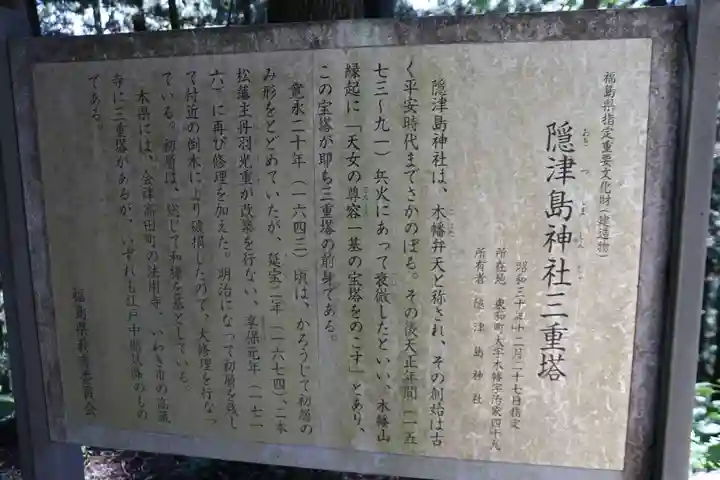 福島県指定重要文化財(建造物)
おき つ しま じん じゃ
隠津島神社三重塔
昭和三十年十二月二十七日指定
所在地 東和町大字木幡字治家四十九
所有者 隠津島神社
隠津島神社は、木幡弁天と称され、その創始は古
く平安時代までさかのぼる。その後天正年間(一五
七三〜九一)兵火にあって衰微したといい、木幡山
縁起に「天女の尊容一基の宝塔をのこす」とあり、
この宝塔が即ち三重塔の前身である。
寛永二十年(一六四三)頃は、かろうじて初層の
み形をとどめていたが、延宝二年(一六七四)、二本
松藩主丹羽光重が改築を行ない、享保元年(一七一
六)に再び修理を加えた。明治になって初層を残し
て付近の倒木により破損したので、大修理を行なっ
ている。初層は、総じて和様を基としている。
本県には、会津高田町の法用寺、いわき市の高蔵
寺に三重塔があるが、いずれも江戸中期以降のもの
である。
福島県教育委員会